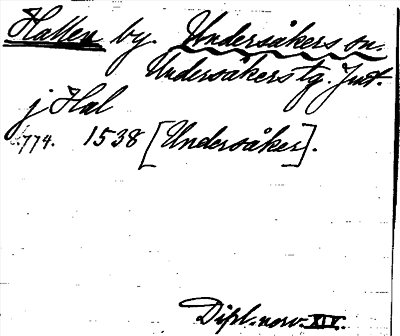 Hallen by. Undersåkers sn.
Undersåkers tg. Jmt.
j Hal
774. 1538 [Undersåker].
Dipl. norv. XIV.